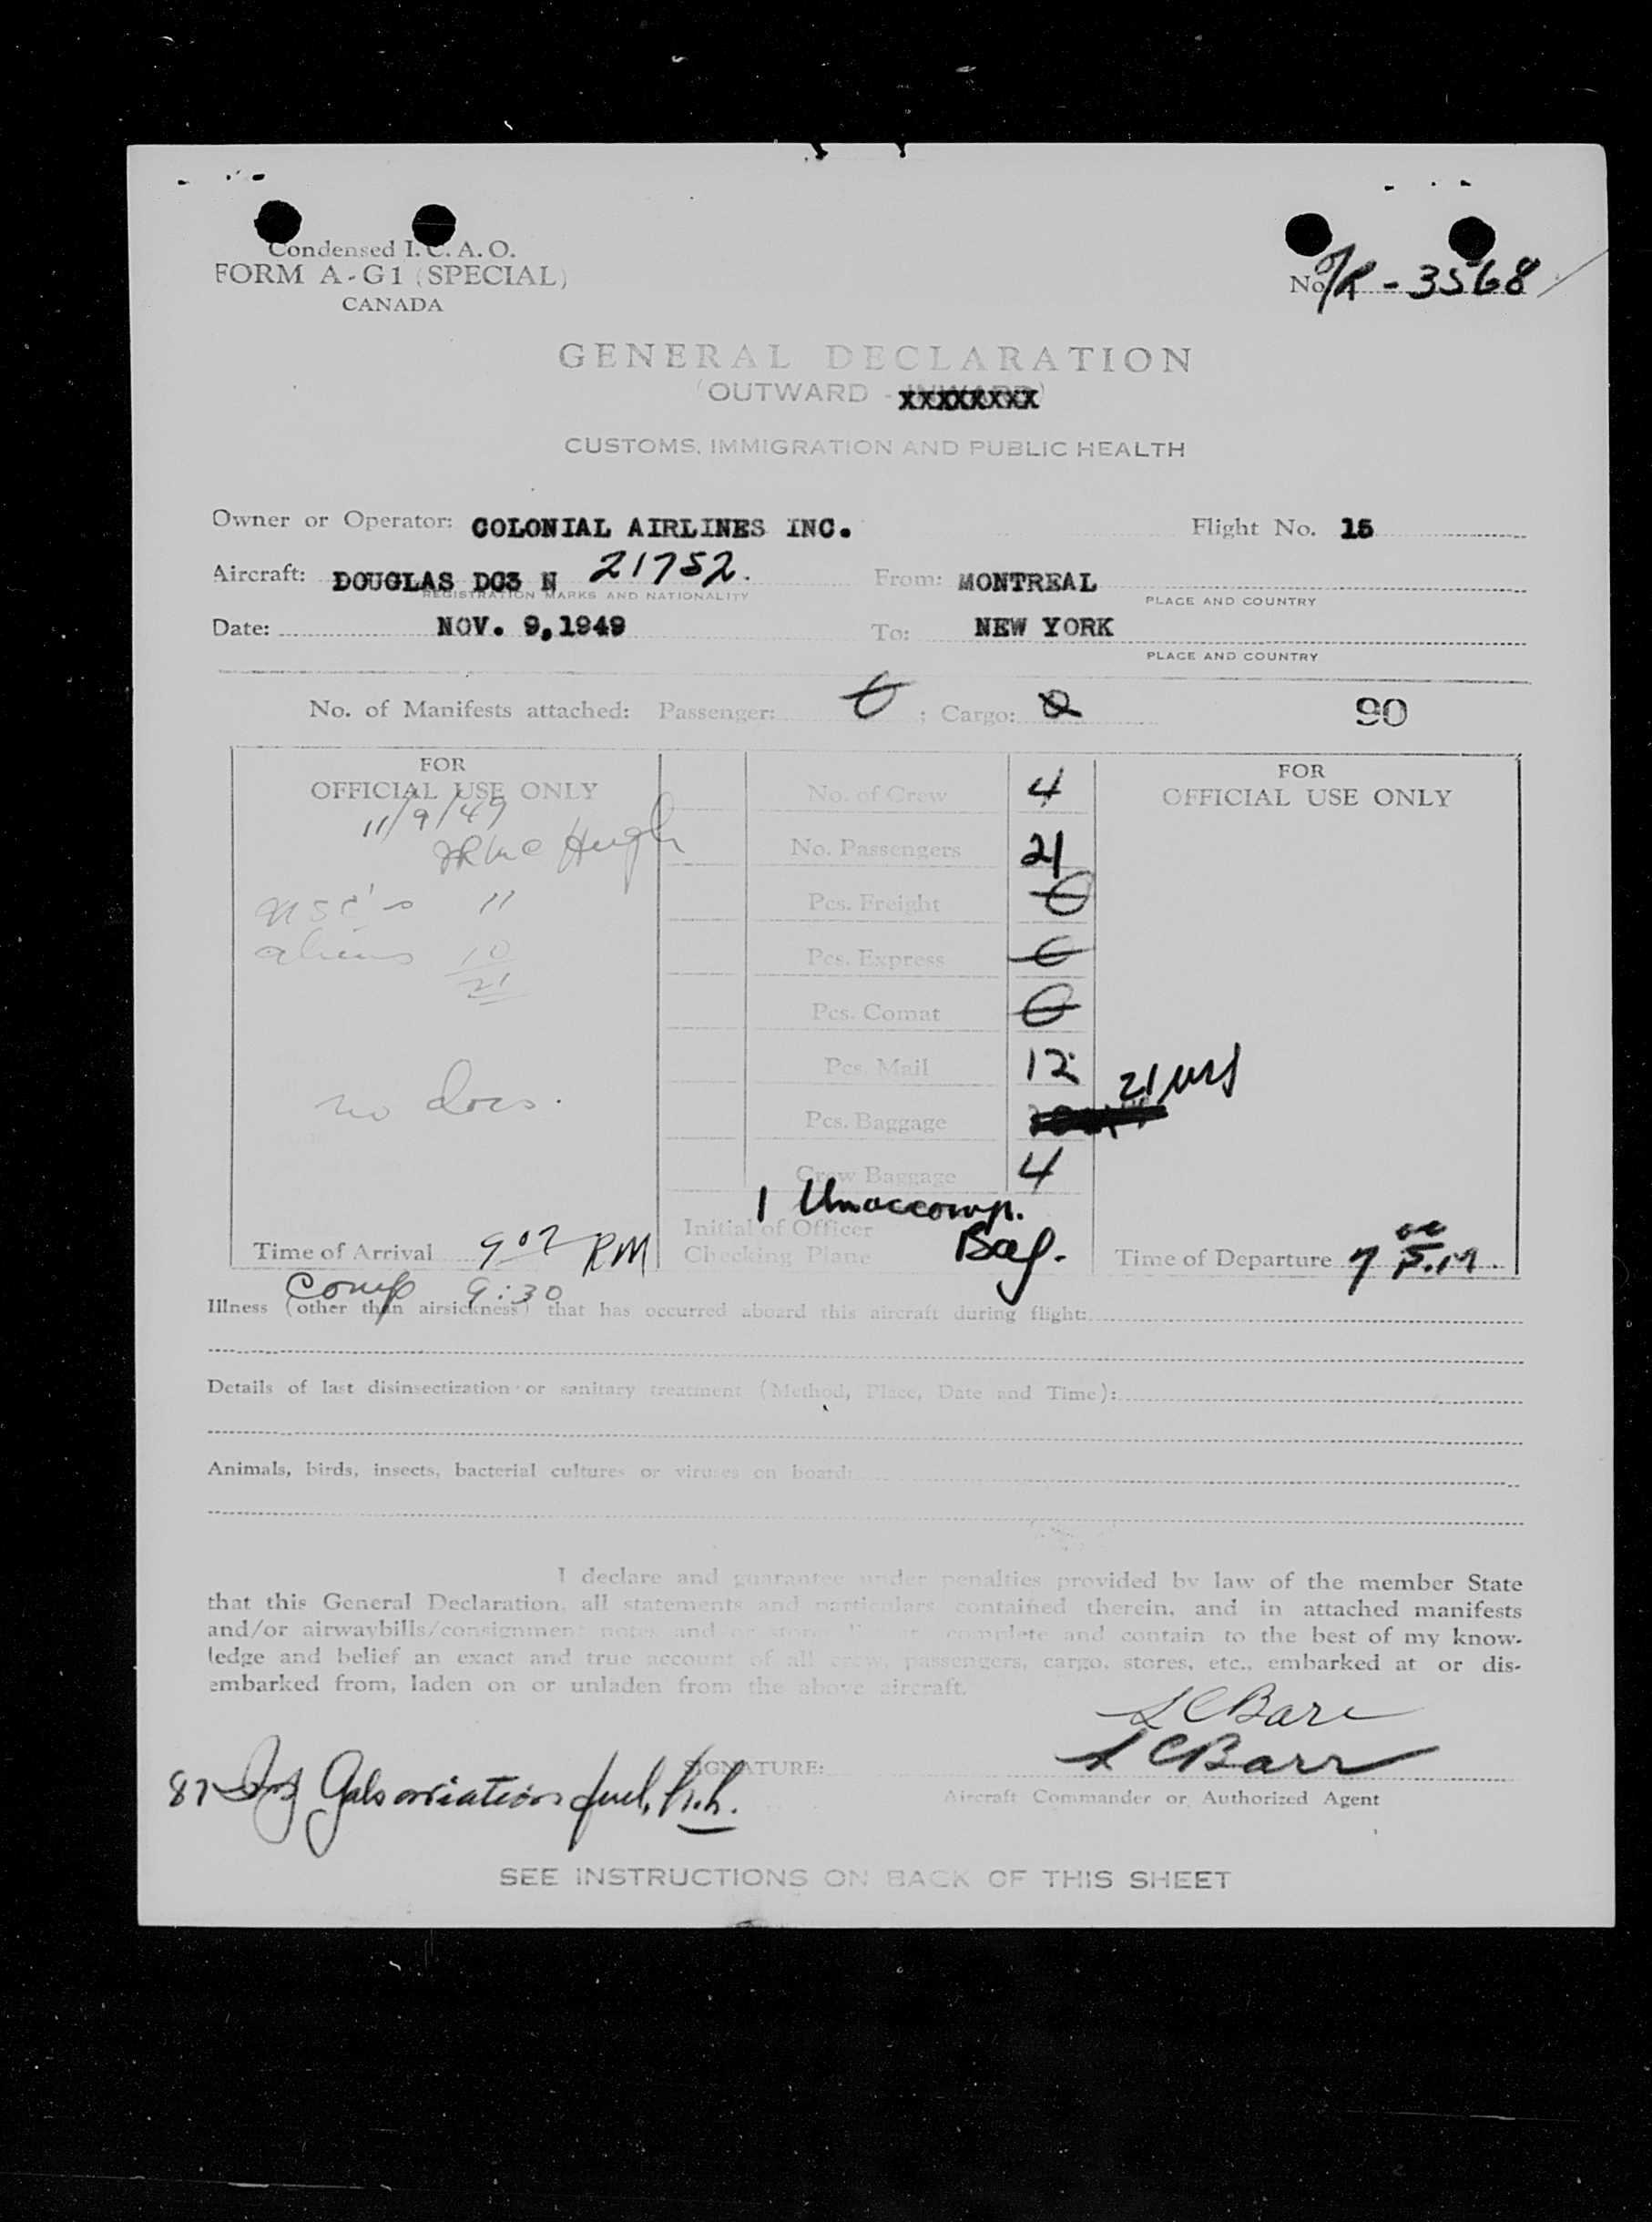 Condensed I. C. A. O.
FORM A-G1 (SPECIAL)
CANADA
No. O/R - 3568
GENERAL DECLARATION
(OUTWARD - XXXXXXXX)
CUSTOMS, IMMIGRATION AND PUBLIC HEALTH
Owner or Operator: COLONIAL AIRLINES INC. Flight No. 15
Aircraft: DOUGLAS DC3 N 21752. From: MONTREAL
REGISTRATION MARKS AND NATIONALITY PLACE AND COUNTRY
Date: NOV. 9,1949 To: NEW YORK
PLACE AND COUNTRY
No. of Manifests attached: Passenger: 0 ; Cargo: 0 90
FOR
OFFICIAL USE ONLY
11/9/49
McHugh
11
aliens 10
21
no docs.
Time of Arrival 9 07 PM
Comp 9:30
No. of Crew 4
No. Passengers 21
Pcs. Freight 0
Pcs. Express 0
Pcs. Comat 0
Pcs. Mail 12
Pcs. Baggage 21
Crew Baggage 4
1 Unaccomp.
Bag.
Initial of Officer
Checking Plane
FOR
OFFICIAL USE ONLY
Time of Departure 7 00 P.M.
Illness (other than airsickness) that has occurred aboard this aircraft during flight:
Details of last disinsectization or sanitary treatment (Method, Place, Date and Time):
Animals, birds, insects, bacterial cultures or viruses on board:
I declare and guarantee under penalties provided by law of the member State
that this General Declaration, all statements and particulars contained therein, and in attached manifests
and/or airwaybills/consignment notes and or stores list are complete and contain to the best of my know-
ledge and belief an exact and true account of all crew, passengers, cargo, stores, etc., embarked at or dis-
embarked from, laden on or unladen from the above aircraft.
L C Barr
SIGNATURE: L C Barr
Aircraft Commander or Authorized Agent
Gals aviation fuel, h.h.
SEE INSTRUCTIONS ON BACK OF THIS SHEET